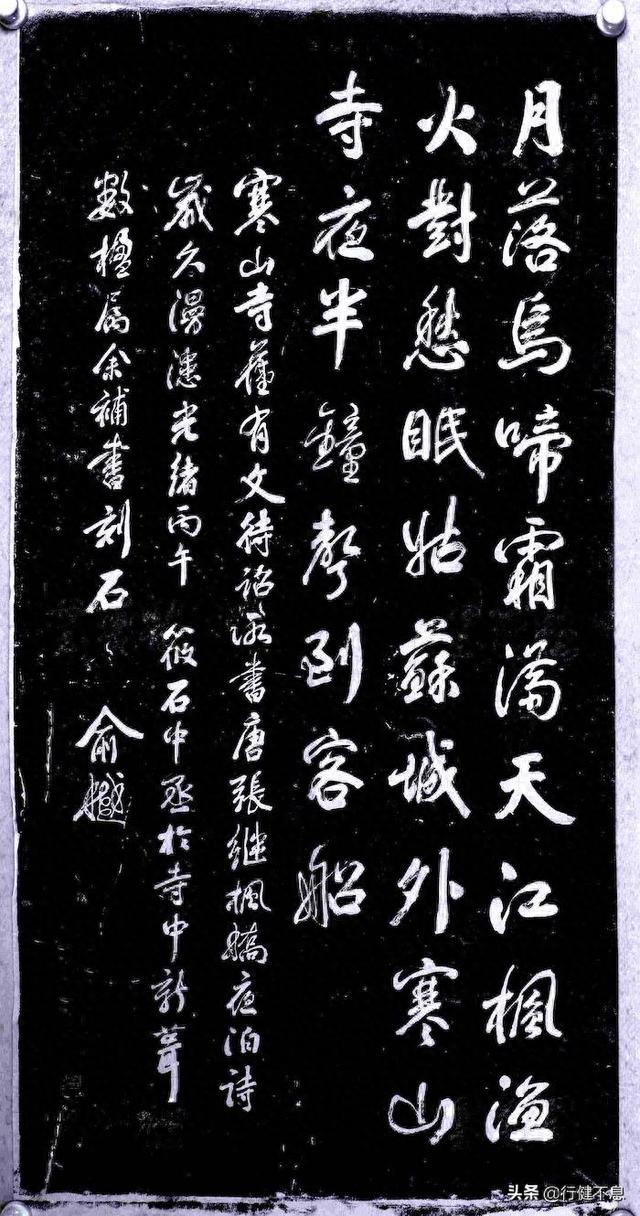 月落烏啼霜滿天江楓漁
火對愁眠姑蘇城外寒山
寺夜半鐘聲到客船
寒山寺舊有文待詔所書唐張繼楓橋夜泊詩
歲久漫漶光緒丙午 筱石中丞於寺中新葺
數楹屬余補書刻石〻 俞樾
头条 @行健不息